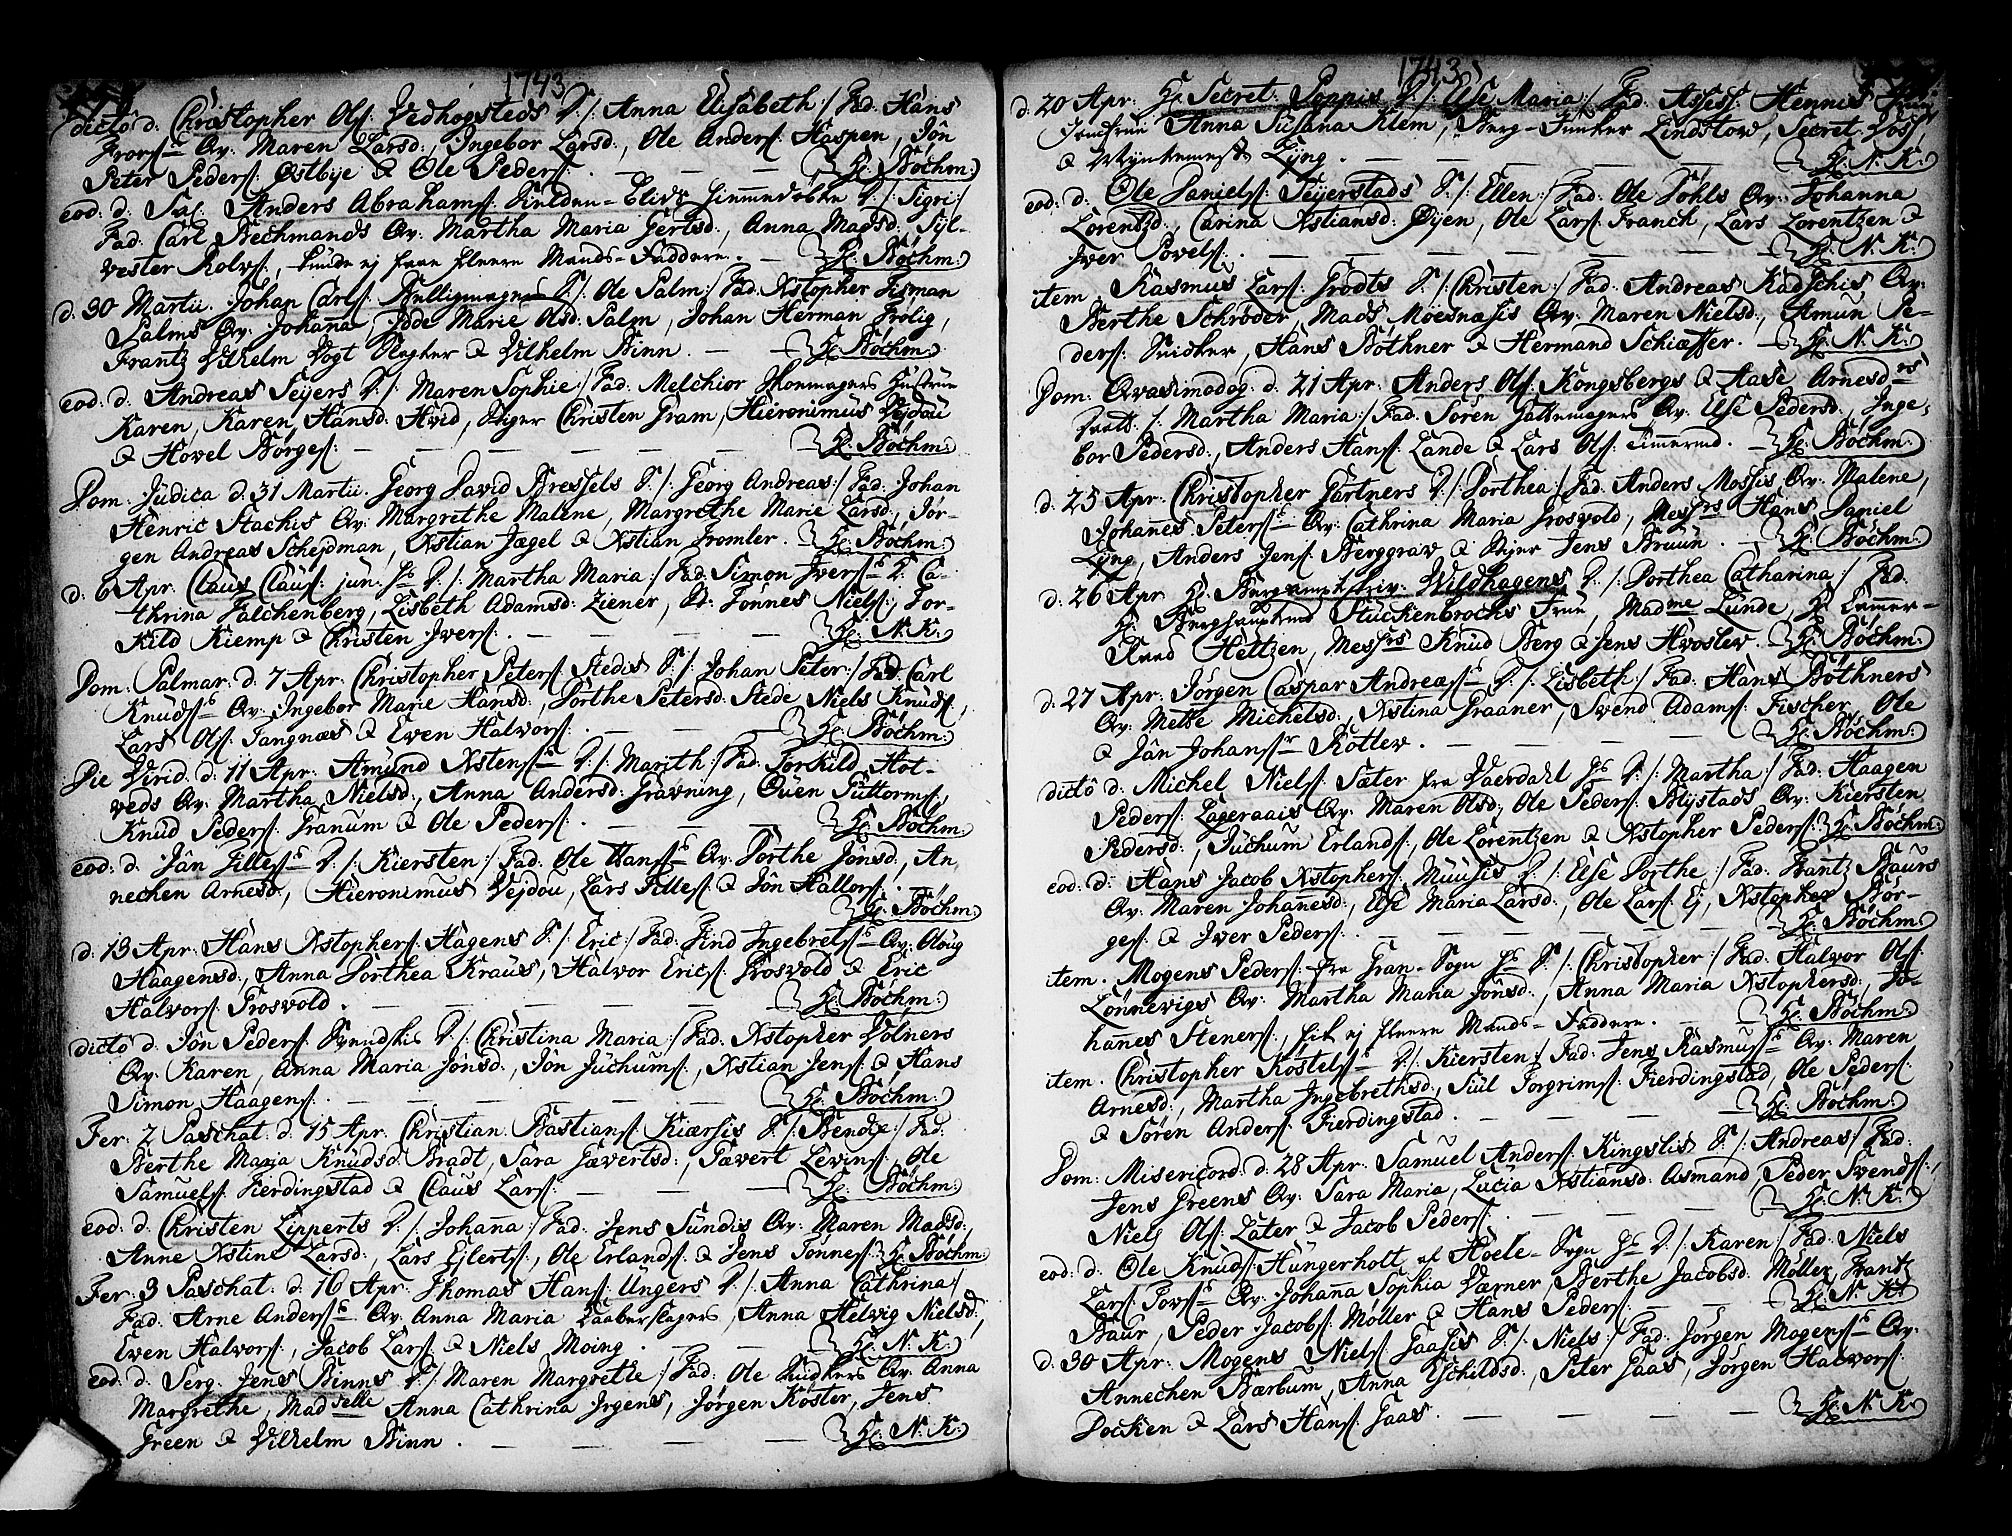 1743
dicto d. Christopher Ols: Vedhogsteds D: /: Anna Elisabeth :/ Fad: Hans
Frors Qv: Maren Larsd:, Ingebor Larsd:, Ole Anders: Haspen, Jôn
Peter Peders: Østbye & Ole Peders:
Hr: Bøchm:
eod: d. Anders Abrahams: D: /: Sigri :/
Fad: Carl Bechmands Qv: Martha Maria Gertsd:, Anna Madsd: Syl-
vester Rolvs:, kunde ej faae fleere Mands-Faddere.
Hr: Bøchm:
d. 30 Martii. Johan Carls: S: /: Ole Palm :/ Fad: Xstopher Tisman
Palms Qv: Johanna, Marie Olsd: Palm, Johan Herman Frølig,
Frantz Vilhelm Vogt & Vilhelm Binn.
Hr: Bøchm:
eod: d. Andreas Seyers D: /: Maren Sophie :/ Fad: Melchior Hustrue
Karen, Karen Hansd: Hvid, Christen Gram, Hieronimus Vejdou
& Hovel Børges:
Hr: Bøchm:
Dom: Judica d. 31 Martii. Georg David Bressels S: /: Georg Andreas :/ Fad: Johan
Henric Stachis Qv: Margrethe Malene, Margrethe Marie Larsd:, Jør-
gen Andreas Schejdman, Xstian Jægel & Xstian Fromler.
Hr: Bøchm:
d. 6 Apr. Claus Claus: jun: D: /: Martha Maria :/ Fad: Simon Ivers: Q: Ca-
thrina Falchenberg, Lisbeth Adamsd: Ziener, Tønnes Niels:, Tor-
kild Kiemp & Christen Ivers:
Hr: N: K:
Dom: Palmar: d. 7 Apr. Christopher Peters: Stedis S: /: Johan Peter :/ Fad: Carl
Knuds: Qv: Ingebor Marie Hansd:, Dorthe Petersd: Stede Niels Knuds:,
Lars Ols: Tangnæs & Even Halvors:
Hr: Bøchm:
Die Virid: d. 11 Apr: Amund Xstens: D: /: Marith :/ Fad: Torkild Hol-
veds Qv: Martha Nielsd:, Anna Andersd: Gravning, Ouen Guttorms:,
Knud Peders: Granum & Ole Peders:
Hr: Bøchm:
eod: d. Jôn Tilles: D: /: Kiersten :/ Fad: Ole Hans: Qv: Dorthe Jônsd:, An-
nechen Arnesd:, Hieronimus Vejdou, Lars Tilles: & Jôn Hallors:
Hr: Bøchm:
d. 13 Apr. Hans Xstophers: Hagens S: /: Eric :/ Fad: Find Ingebrets: Qv: Oloug
Haagensd:, Anna Dorthea Kraus, Halvor Erics: Trosvold & Eric
Halvors: Trosvold.
Hr: Bøchm:
dicto d. Jôn Peders: Svendsis D: /: Christina Maria :/ Fad: Xstopher Völners
Qv: Karen, Anna Maria Jônsd:, Jôn Juchums:, Xstian Jens: & Hans
Simon Haagens:
Hr: Bøchm:
Fer: 2 Paschat: d. 15 Apr. Christian Bastians: Kiærsis S: /: Bendix :/ Fad:
Berthe Maria Knudsd: Bradt, Sara Gævertsd:, Gævert Levins:, Ole
Samuels: Fierdingstad & Claus Lars:
Hr: Bøchm:
eod: d. Christen Lipperts D: /: Johanna :/ Fad: Jens Sundis Qv: Maren Madsd:,
Anne Xstine Larsd:, Lars Ejlerts:, Ole Erlands: & Jens Tønnes: Hr: Bøchm:
Fer: 3 Paschat: d. 16 Apr: Thomas Hans: Ungers D: /: Anna Cathrina :/
Fad: Arne Anders: Qv: Anna Maria, Anna Helvig Nielsd:,
Even Halvors:, Jacob Lars: & Niels Moing.
Hr: N: K:
eod: d. Serg: Jens Binns D: /: Maren Margrethe :/ Fad: Ole Qv: Anna
Margrethe, Madselle Anna Cathrina Irgens, Jørgen Koster, Jens
Green & Vilhelm Binn.
Hr: N: K:
1743
d. 20 Apr. Hr: Secret: Poppis D: /: Else Maria :/ Fad: Assess: Hennis Frue
Jomfrue Anna Susana Klem, Berg-Junker Lindstow, Secret: Voss,
& Myntemest: Lyng.
Hr: N: K:
eod: d. Ole Daniels: Seyerstads D: /: Ellen :/ Fad: Ole Pohls Qv: Johanna
Lorentzd:, Carina Xstiansd: Øyen, Ole Lars: Franch, Lars Lorentzen &
Iver Povels:
Hr: N: K:
item. Rasmus Lars: Grødts S: /: Christen :/ Fad: Andreas Kadschis Qv:
Berthe Schrøder, Mads Moesnæsis Qv: Maren Nielsd:, Amun Pe-
ders: Snicker, Hans Bøthner & Hermand Schiæffer.
Hr: N: K:
Dom: Qvasimodog: d. 21 Apr. Anders Ols: Kongsbergs & Aase Arnesdrs
/: Martha Maria :/ Fad: Søren Qv: Else Pedersd:, Inge-
bor Pedersd:, Anders Hans: Lande & Lars Ols: Timmermd.
Hr: Bøchm:
d. 25 Apr. Christopher Gartners D: /: Dorthea :/ Fad: Anders Mossis Qv: Malene,
Johannes Peters: Qv: Cathrina Maria Trosvold, Messrs Hans Daniel
Lyng, Anders Jens: Berggrav & Jens Bruun.
Hr: Bøchm:
d. 26 Apr. Hr: Bergamptskriv: Wildhagens D: /: Dorthea Catharina :/ Fad:
Hr: Berghauptmd Stuckenbrochs Frue, Madme Lunde, Hr: Cammer-
Raad Heltzen, Messrs Knud Berg & Jens Hvoslev.
Hr: Bøchm:
d. 27 Apr. Jørgen Caspar Andreas: D: /: Lisbeth :/ Fad: Hans Bøthners
Qv: Mette Michelsd:, Xstina Graaner, Svend Adams: Fischer, Ole
& Jôn Johans: Kotlev.
Hr: Bøchm:
dicto d. Michel Niels: Sæter fra Vaerdahl D: /: Martha :/ Fad: Haagen
Peders: Lageraais Qv: Maren Olsd:, Ole Peders: Blystads Qv: Kiersten
Pedersd:, Juchum Erlands:, Ole Lorentzen & Xstopher Peders: Hr: Bøchm:
eod: d: Hans Jacob Xstophers: Muusis D: /: Else Dorthe :/ Fad: Frantz Baurs
Qv: Maren Johannesd:, Else Maria Larsd:, Ole Lars: Ej, Xstopher Bør-
ges: & Iver Peders:
Hr: Bøchm:
item. Mogens Peders: fra Gran-Sogn S: /: Christopher :/ Fad: Halvor Ols:
Lønnevigs Qv: Martha Maria Jônsd:, Anna Maria Xstophersd:, Jo-
hannes Steners:, fik ej fleere Mands-Faddere.
Hr: Bøchm:
item. Christopher Kostels: D: /: Kiersten :/ Fad: Jens Rasmus: Qv: Maren
Arnesd:, Martha Ingebrethsd:, Siul Torgrims: Fierdingstad, Ole Peders:
& Søren Anders: Fierdingstad.
Hr: Bøchm:
Dom: Misericord: d. 28 Apr. Samuel Anders: Kingslis S: /: Andreas :/ Fad:
Jens Greens Qv: Sara Maria, Lucia Xstiansd: Asmand, Peder Svends:,
Niels Ols: Later & Jacob Peders:
Hr: N: K:
eod: d. Ole Knuds: Hungerholt af Hoele-Sogn D: /: Karen :/ Fad: Niels
Lars: Qv: Johanna Sophia Værner, Berthe Jacobsd: Møller, Frantz
Baur, Peder Jacobs: Møller & Hans Peders:
Hr: N: K:
d. 30 Apr. Mogens Niels: Gaasis S: /: Niels :/ Fad: Jørgen Mogens: Qv:
Annechen Bærbum, Anna Eschildsd:, Peter Gaas, Jørgen Halvors:
Docken & Lars Hans: Gaas.
Hr: N: K: